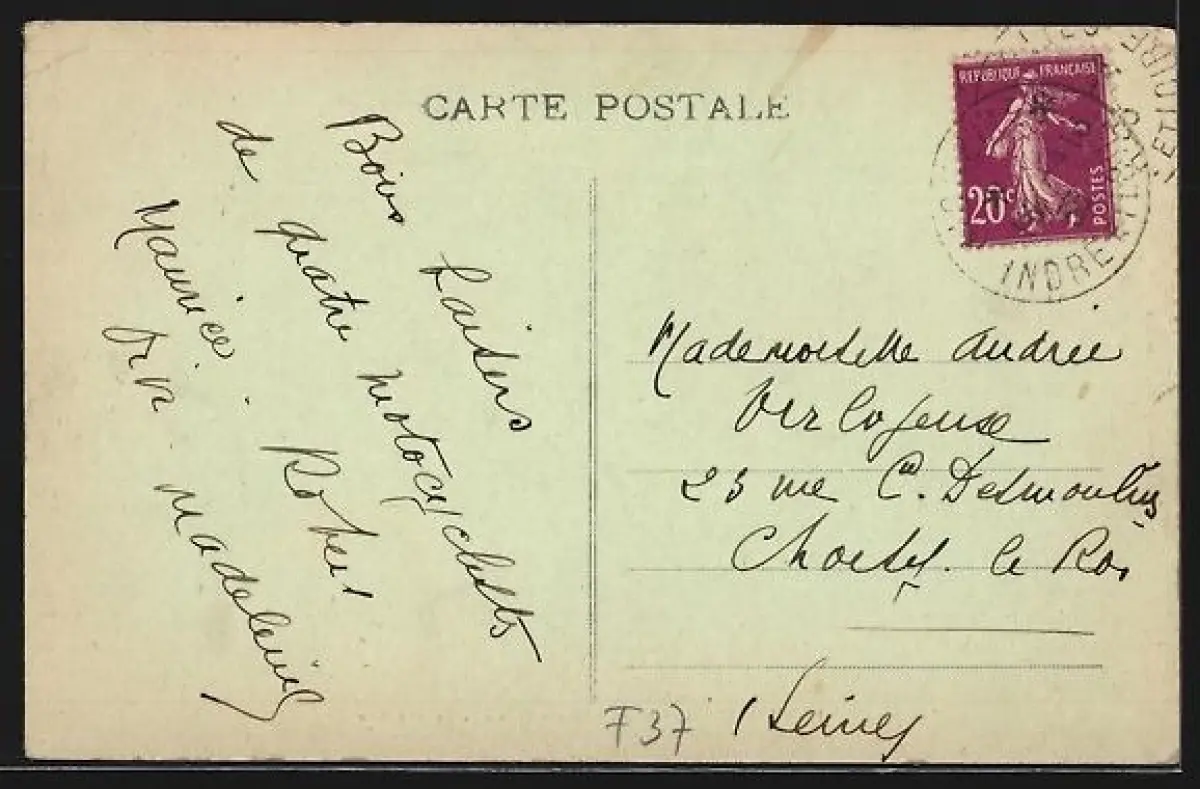 CARTE POSTALE
REPUBLIQUE FRANÇAISE
20c
POSTES
INDRE
Bons baisers
de quatre motocyclistes
Maurice. Robert
Madeleine
Mademoiselle Andrée
23 rue C. Desmoulins
Choisy. le Roi
(Seine)
F37